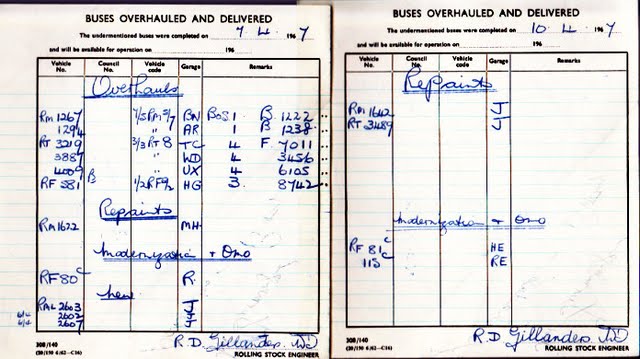 BUSES OVERHAULED AND DELIVERED
The undermentioned buses were completed on 7 4 1967
and will be available for operation on 196
Vehicle No. Council No. Vehicle code Garage Remarks
Overhauls
RM 1267 7/5RM5/7 BN BoS1 B. 1222
1294 " AR 1 B 1238
RT 3219 3/3RT8 TC 4 F. 7011
3887 " WD 4 3456
4009 B " UX 4 6105
RF 581 1/2RF9/2 HG 3. 8742
Repaints
RM1622 MH
Modernization + Omo
RF 80c R.
New
RML 2603 J
6/4 2602 J
6/4 2607 J
R.D. Gillanders
ROLLING STOCK ENGINEER
308/140
(50/150 6/62-C16)
BUSES OVERHAULED AND DELIVERED
The undermentioned buses were completed on 10 4 1967
and will be available for operation on 196
Vehicle No. Council No. Vehicle code Garage Remarks
Repaints
RM 1642 J
RT 3489 J
Modernization + Omo
RF 81c HE
115c RE
R.D. Gillanders
ROLLING STOCK ENGINEER
308/140
(50/150 6/62-C16)